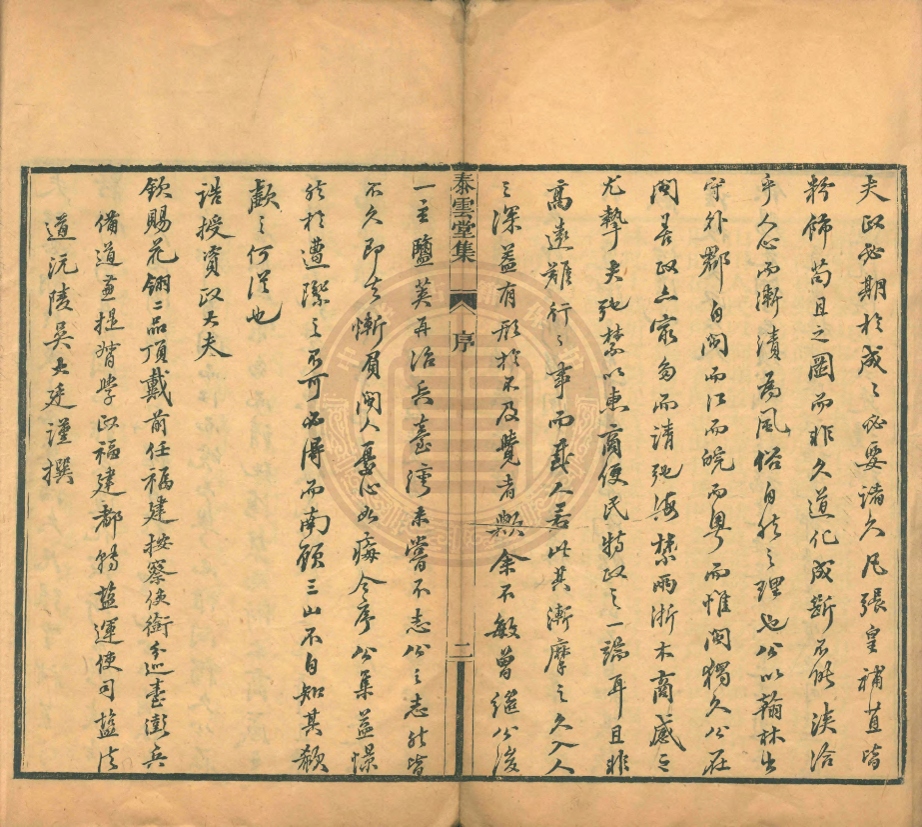 夫政必期於成之必要諸久凡張皇補苴皆
粉飾苟且之圖而非久道化成斷不能浹洽
乎人心而漸漬為風俗自然之理也公以翰林出
守外郡自閩而江而皖而粵而惟閩獨久公在
閩善政亦最多而請弛海禁兩浙木商感之
尤摯夫弛禁以惠商便民特政之一端耳且非
高遠難行之事而感人若此其漸摩之久入人
之深蓋有形於不及覺者歟余不敏曾繼公後
泰雲堂集
序
二
一主鹽莢再治兵臺灣未嘗不志公之志然皆
不久即去慚負閩人憂心如痗今序公集益憬
然於遭際之不可必得而南顧三山不自知其欷
歔之何從也
誥授資政大夫
欽賜花翎二品頂戴前任福建按察使銜分巡臺澎兵
備道兼提督學政福建都轉鹽運使司鹽法
道沅陵吳大廷謹撰